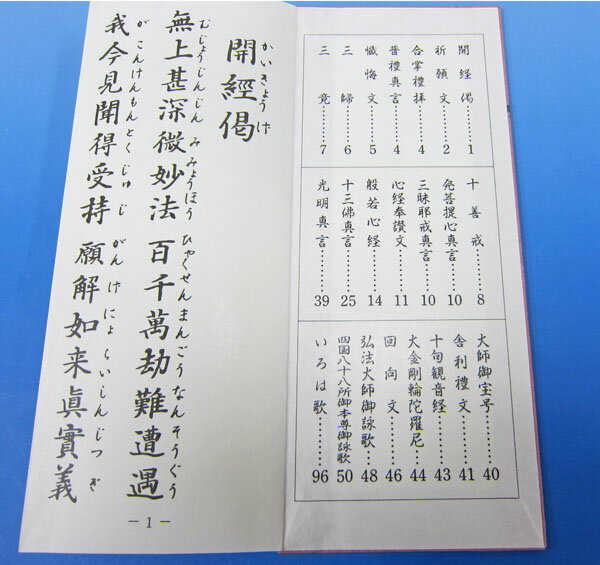 開經偈……1
祈願文……2
合掌禮拝……4
普禮真言……4
懺悔文……5
三歸……6
三竟……7
十善戒……8
発菩提心真言……10
三昧耶戒真言……10
心経奉讃文……11
般若心経……14
十三佛真言……25
光明真言……39
大師御宝号……40
舎利禮文……41
十句観音経……43
大金剛輪陀羅尼……44
回向文……46
弘法大師御詠歌……48
四国八十八所御本尊御詠歌……50
いろは歌……96
かいきょうけ
開經偈
むじょうじんじんみみょうほう ひゃくせんまんごうなんそうぐう
無上甚深微妙法 百千萬劫難遭遇
がこんけんもんとくじゅじ がんけにょらいしんじつぎ
我今見聞得受持 願解如来眞實義
−1−